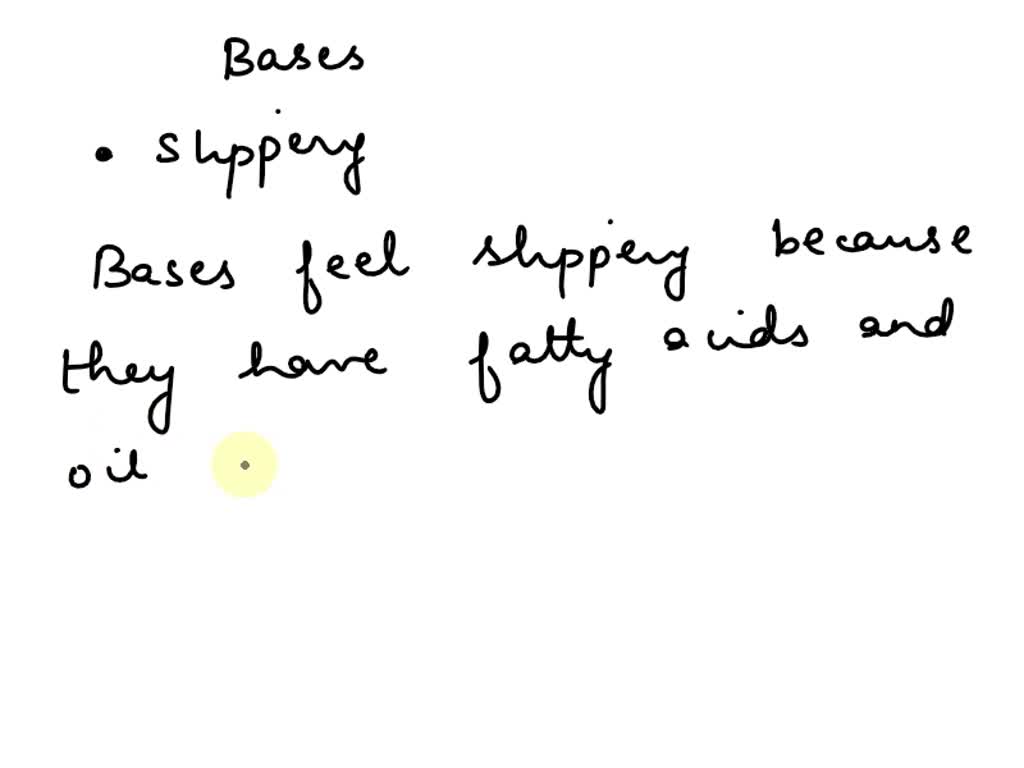 Bases
• slippery
Bases feel slippery because
they have fatty acids and
oil